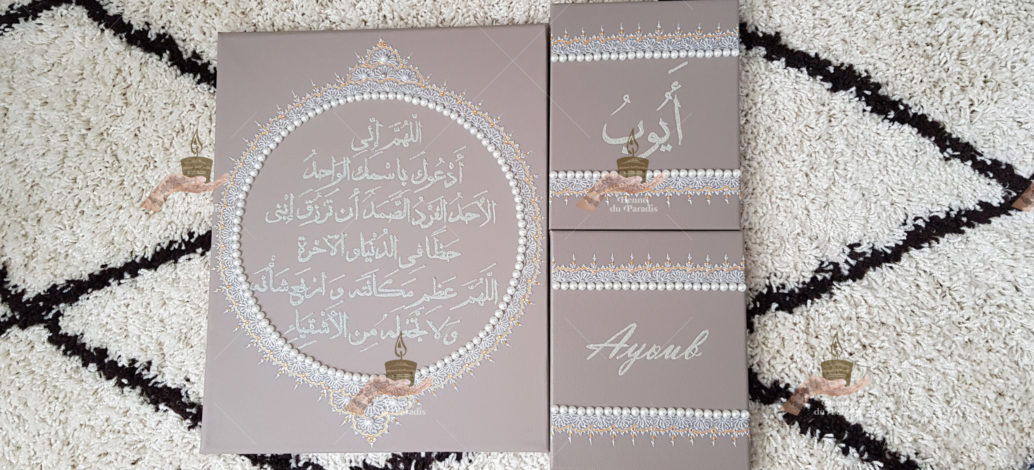 اللّهُمَّ إنّي
أَدْعُوكَ بِاسْمِكَ الوَاحِدُ
الأَحَدُ الفَرْدُ الصَّمَدُ أن تَرْزُقَ إبْنِي
حَظًا فِي الدُنْيَا وَ الآخِرَة
اللّهُمَّ عَظِم مَكَانَتَه وَ ارْفَع شَأْنَه
وَلَا تَجْعَلهُ مِنَ الأشْقِيَاءِ
أَيُوبُ
Henné
du Paradis
Ayoub
Henné
du Paradis
du Paradis